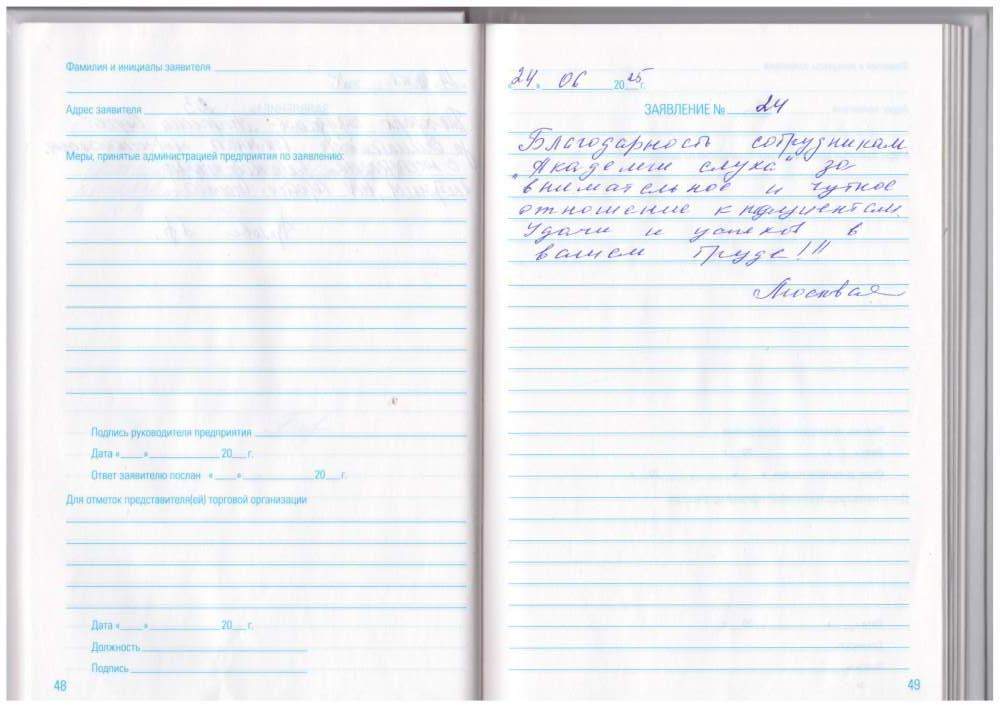 Фамилия и инициалы заявителя
Адрес заявителя
Меры, принятые администрацией предприятия по заявлению:
Подпись руководителя предприятия
Дата «___»____________20__г.
Ответ заявителю послан «___»____________20__г.
Для отметок представителя(ей) торговой организации
Дата «___»____________20__г.
Должность
Подпись
48
«24» 06 2025 г.
ЗАЯВЛЕНИЕ № 24
Благодарность сотрудникам
„Академии слуха“ за
внимательное и чуткое
отношение к пациентам.
Удачи и успехов в
вашем труде!!!
49